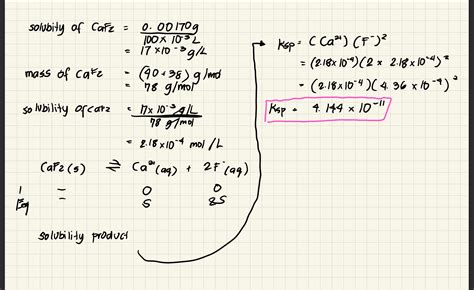 solubity of CaF2 = 0.00170g
100 x 10-3 L
= 17 x10-3 g/L
mass of CaF2 = (40+38) g/mol
= 78 g/mol
solubility of CaF2 = 17x 10-3 g/L
78 g/mol
= 2.18 x10-4 mol /L
CaF2 (s) ⇌ Ca2+ (aq) + 2F- (aq)
I – 0 0
Eq – S 2S
solubility product
Ksp = (Ca2+) (F-)2
= (2.18x10-4) (2 x 2.18 x10-4)2
= (2.18 x10-4) (4.36 x 10-4)2
Ksp = 4.144 x 10-11